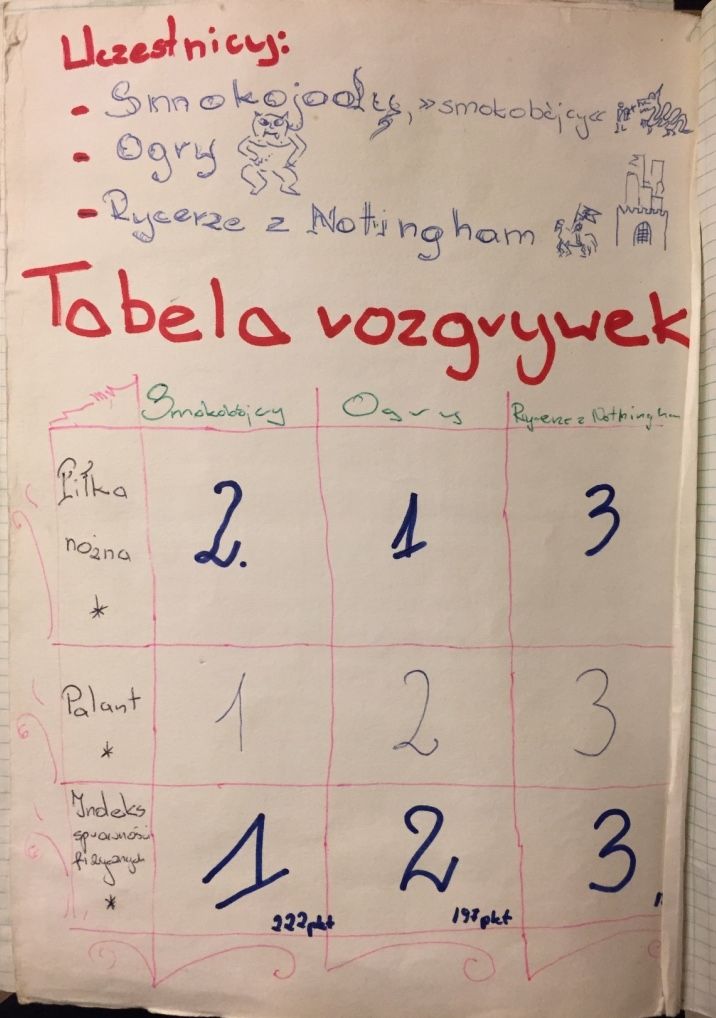 Uczestnicy:
- Smokojady, »smokobójcy«
- Ogry
- Rycerze z Notingham
Tabela rozgrywek
Smokobójcy Ogry Rycerze z Nothingham
Piłka nożna * 2. 1 3
Palant * 1 2 3
Indeks sprawności fizycznych * 1 2 3
222pkt 197pkt